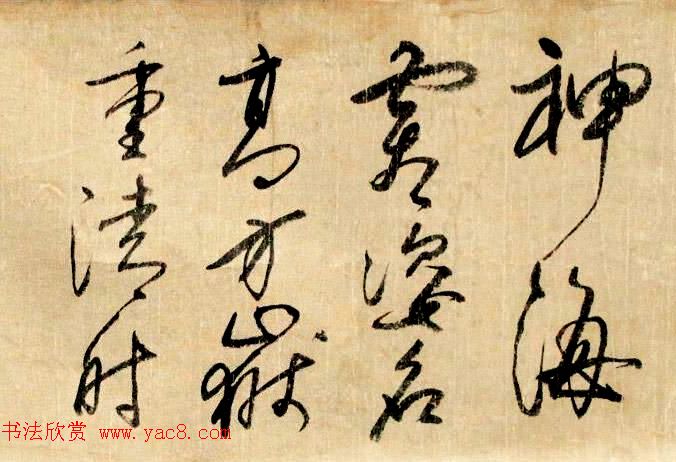 神海
露姿名
高方嶽
重清时
书法欣赏 www.yac8.com